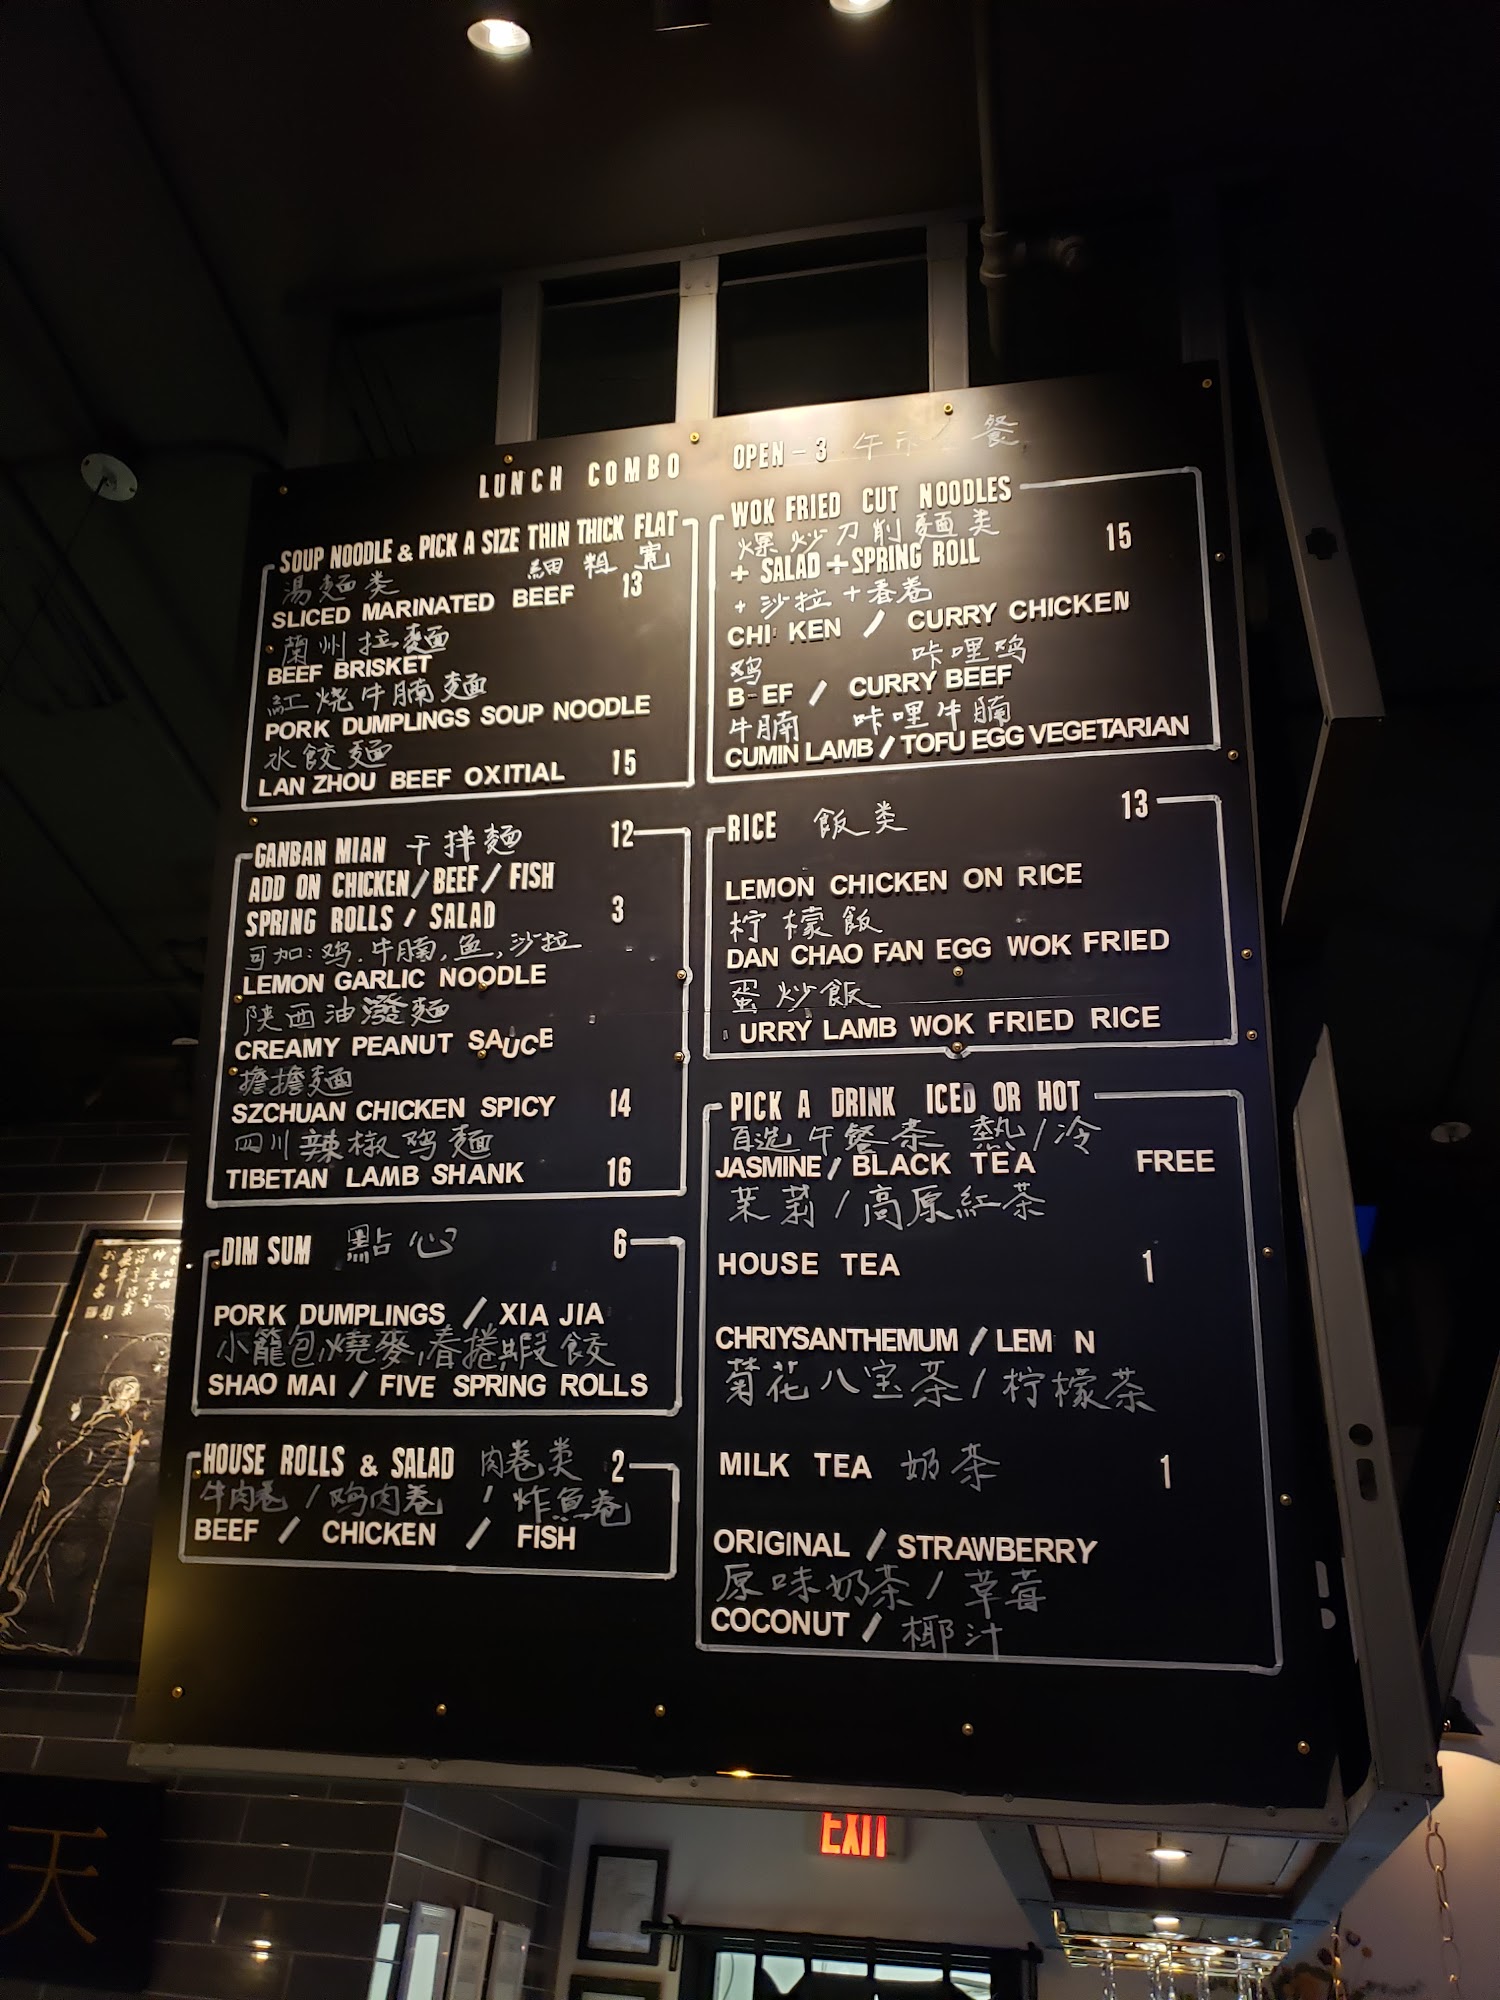 LUNCH COMBO OPEN - 3 午市 餐
SOUP NOODLE & PICK A SIZE THIN THICK FLAT
湯麵类 細 粗 寬
SLICED MARINATED BEEF 13
蘭州拉麵
BEEF BRISKET
紅烧牛腩麵
PORK DUMPLINGS SOUP NOODLE
水餃麵
LAN ZHOU BEEF OXITIAL 15
GANBAN MIAN 干拌麵 12
ADD ON CHICKEN/BEEF/FISH
SPRING ROLLS / SALAD 3
可加:鸡.牛腩,鱼,沙拉
LEMON GARLIC NOODLE
陕西油潑麵
CREAMY PEANUT SAUCE
擔擔麵
SZCHUAN CHICKEN SPICY 14
四川辣椒鸡麵
TIBETAN LAMB SHANK 16
DIM SUM 點心 6
PORK DUMPLINGS / XIA JIA
小籠包,燒麥,春捲,蝦餃
SHAO MAI / FIVE SPRING ROLLS
HOUSE ROLLS & SALAD 肉卷类 2
牛肉卷 / 鸡肉卷 / 炸魚卷
BEEF / CHICKEN / FISH
WOK FRIED CUT NOODLES
爆炒刀削麵类 15
+ SALAD + SPRING ROLL
+ 沙拉 + 春卷
CHI KEN / CURRY CHICKEN
鸡 咖哩鸡
B-EF / CURRY BEEF
牛腩 咖哩牛腩
CUMIN LAMB / TOFU EGG VEGETARIAN
RICE 飯类 13
LEMON CHICKEN ON RICE
柠檬飯
DAN CHAO FAN EGG WOK FRIED
蛋炒飯
URRY LAMB WOK FRIED RICE
PICK A DRINK ICED OR HOT
自选午餐茶 熱/冷
JASMINE / BLACK TEA FREE
茉莉/高原紅茶
HOUSE TEA 1
CHRIYSANTHEMUM / LEM N
菊花八宝茶/柠檬茶
MILK TEA 奶茶 1
ORIGINAL / STRAWBERRY
原味奶茶/草莓
COCONUT / 椰汁
天
EXIT